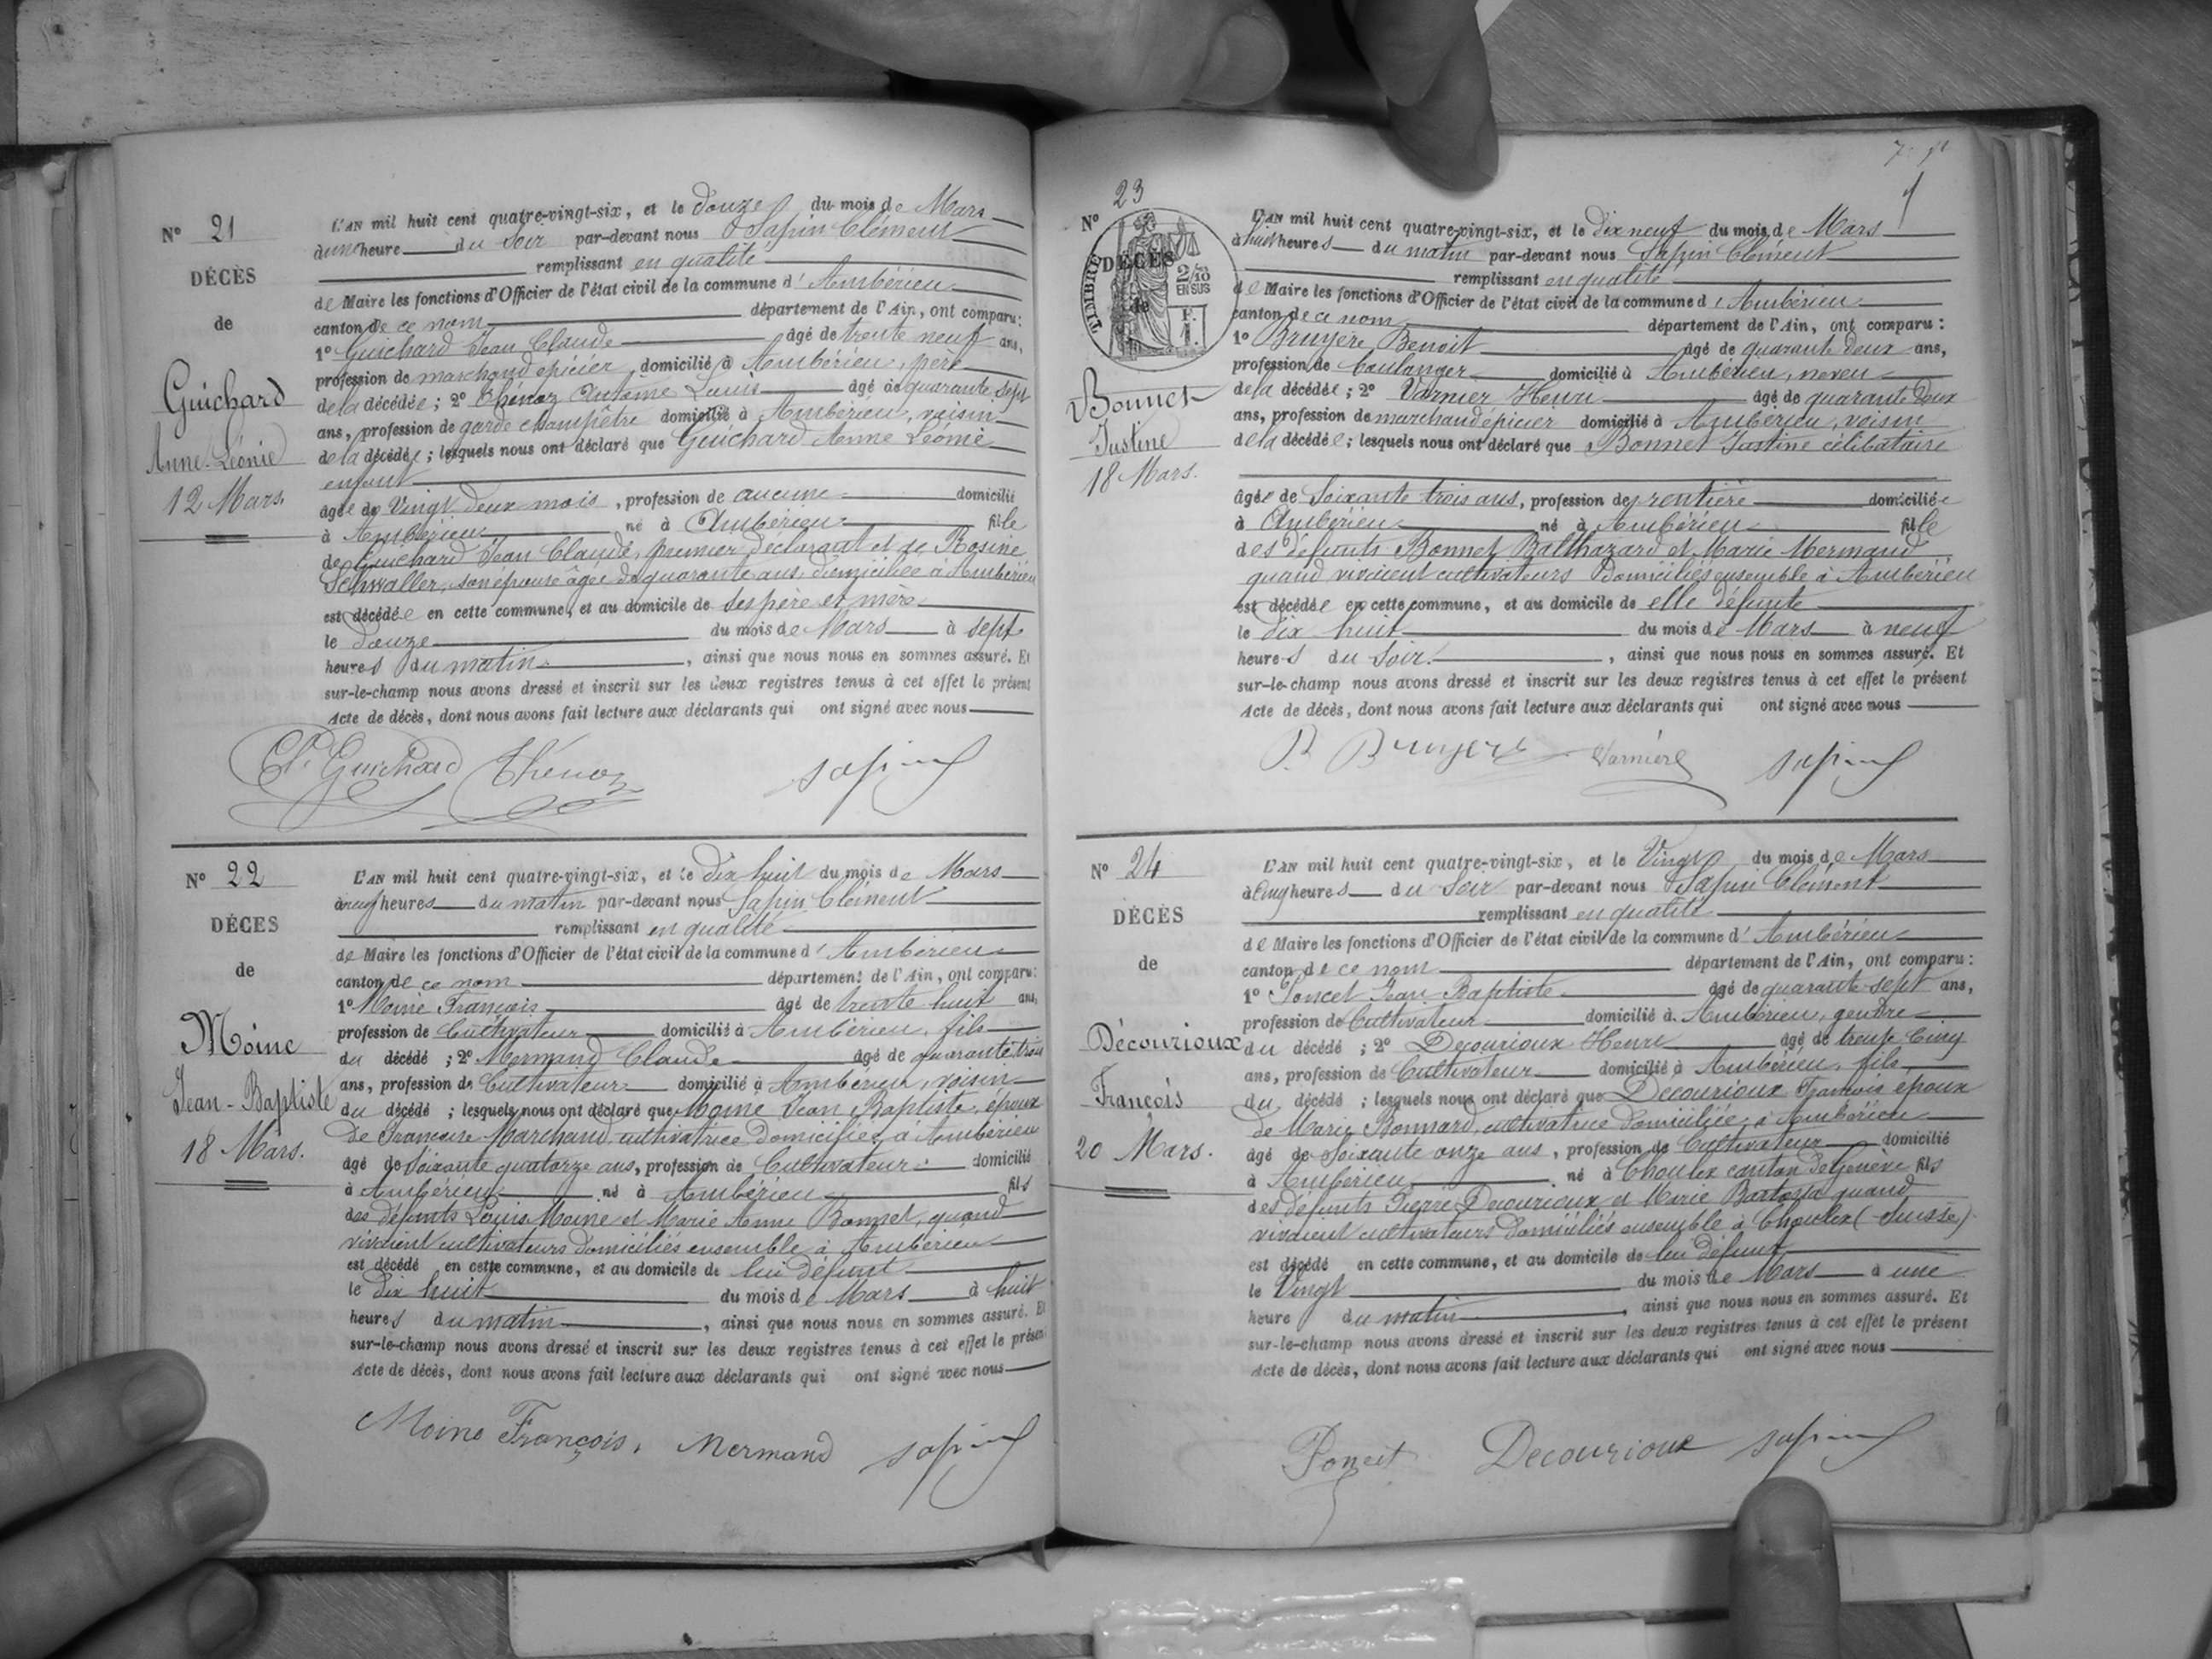 N° 21
DÉCÈS
de
Guichard
Anne-Léonie
12 Mars.
L'AN mil huit cent quatre-vingt-six, et le douze du mois de Mars
à une heure du soir par-devant nous Sapin Clément
remplissant en qualité
de Maire les fonctions d'Officier de l'état civil de la commune d'Ambérieu
canton de ce nom département de l'Ain, ont comparu:
1° Guichard Jean Claude âgé de trente neuf ans,
profession de marchand épicier domicilié à Ambérieu, père
de la décédée; 2° Thénoz Antoine Louis âgé de quarante sept
ans, profession de garde champêtre domicilié à Ambérieu, voisin
de la décédée; lesquels nous ont déclaré que Guichard Anne Léonie
enfant
âgée de Vingt deux mois, profession de aucune domicilié
à Ambérieu né à Ambérieu fille
de Guichard Jean Claude, premier déclarant et de Rosine
Schwaller, son épouse âgée de quarante ans, domiciliée à Ambérieu
est décédée en cette commune, et au domicile de ses père et mère
le douze du mois de Mars à sept
heures du matin, ainsi que nous nous en sommes assuré. Et
sur-le-champ nous avons dressé et inscrit sur les deux registres tenus à cet effet le présent
Acte de décès, dont nous avons fait lecture aux déclarants qui ont signé avec nous
Cl. Guichard Thénoz Sapin
N° 22
DÉCÈS
de
Moine
Jean-Baptiste
18 Mars.
L'AN mil huit cent quatre-vingt-six, et le dix huit du mois de Mars
à neuf heures du matin par-devant nous Sapin Clément
remplissant en qualité
de Maire les fonctions d'Officier de l'état civil de la commune d'Ambérieu
canton de ce nom département de l'Ain, ont comparu:
1° Moine François âgé de trente huit ans,
profession de Cultivateur domicilié à Ambérieu, fils
du décédé; 2° Mermand Claude âgé de quarante trois
ans, profession de Cultivateur domicilié à Ambérieu, voisin
du décédé; lesquels nous ont déclaré que Moine Jean Baptiste, époux
de Françoise Marchand, cultivatrice domiciliée à Ambérieu
âgé de Soixante quatorze ans, profession de Cultivateur domicilié
à Ambérieu né à Ambérieu fils
des défunts Louis Moine et Marie Anne Bonnet, quand
vivaient cultivateurs domiciliés ensemble à Ambérieu
est décédé en cette commune, et au domicile de lui défunt
le dix huit du mois de Mars à huit
heures du matin, ainsi que nous nous en sommes assuré. Et
sur-le-champ nous avons dressé et inscrit sur les deux registres tenus à cet effet le présent
Acte de décès, dont nous avons fait lecture aux déclarants qui ont signé avec nous
Moine François, Mermand Sapin
N° 23
TIMBRE
2/10
EN SUS
F.
1.
DÉCÈS
de
Bonnet
Justine
18 Mars.
L'AN mil huit cent quatre-vingt-six, et le dix neuf du mois de Mars
à huit heures du matin par-devant nous Sapin Clément
remplissant en qualité
de Maire les fonctions d'Officier de l'état civil de la commune d'Ambérieu
canton de ce nom département de l'Ain, ont comparu:
1° Bruyère Benoit âgé de quarante deux ans,
profession de boulanger domicilié à Ambérieu, neveu
de la décédée; 2° Varnier Henri âgé de quarante deux
ans, profession de marchand épicier domicilié à Ambérieu, voisin
de la décédée; lesquels nous ont déclaré que Bonnet Justine célibataire
âgée de Soixante trois ans, profession de rentière domiciliée
à Ambérieu né à Ambérieu fille
des défunts Bonnet Balthazard et Marie Mermand
quand vivaient cultivateurs domiciliés ensemble à Ambérieu
est décédée en cette commune, et au domicile de elle défunte
le dix huit du mois de Mars à neuf
heures du soir, ainsi que nous nous en sommes assuré. Et
sur-le-champ nous avons dressé et inscrit sur les deux registres tenus à cet effet le présent
Acte de décès, dont nous avons fait lecture aux déclarants qui ont signé avec nous
B Bruyere Varniere Sapin
N° 24
DÉCÈS
de
Décourioux
François
20 Mars.
L'AN mil huit cent quatre-vingt-six, et le Vingt du mois de Mars
à cinq heures du soir par-devant nous Sapin Clément
remplissant en qualité
de Maire les fonctions d'Officier de l'état civil de la commune d'Ambérieu
canton de ce nom département de l'Ain, ont comparu:
1° Poncet Jean Baptiste âgé de quarante sept ans,
profession de Cultivateur domicilié à Ambérieu, gendre
du décédé; 2° Decourioux Henri âgé de trente cinq
ans, profession de Cultivateur domicilié à Ambérieu, fils
du décédé; lesquels nous ont déclaré que Decourioux François époux
de Marie Bonnard, cultivatrice domiciliée à Ambérieu
âgé de Soixante onze ans, profession de Cultivateur domicilié
à Ambérieu né à Choulex canton de Genève fils
des défunts Pierre Decourioux et Marie quand
vivaient cultivateurs domiciliés ensemble à Choulex (Suisse)
est décédé en cette commune, et au domicile de lui défunt
le Vingt du mois de Mars à une
heure du matin, ainsi que nous nous en sommes assuré. Et
sur-le-champ nous avons dressé et inscrit sur les deux registres tenus à cet effet le présent
Acte de décès, dont nous avons fait lecture aux déclarants qui ont signé avec nous
Poncet Decourioux Sapin